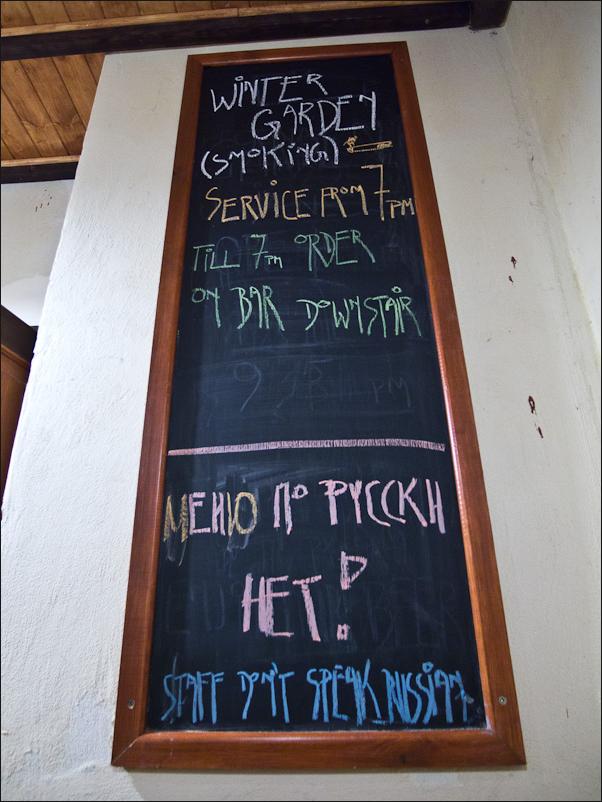 WINTER
GARDEN
(SMOKING)
SERVICE FROM 7PM
TILL 7PM ORDER
ON BAR DOWNSTAIR
МЕНЮ ПО РУССКИ
НЕТ!
STAFF DON'T SPEAK RUSSIAN